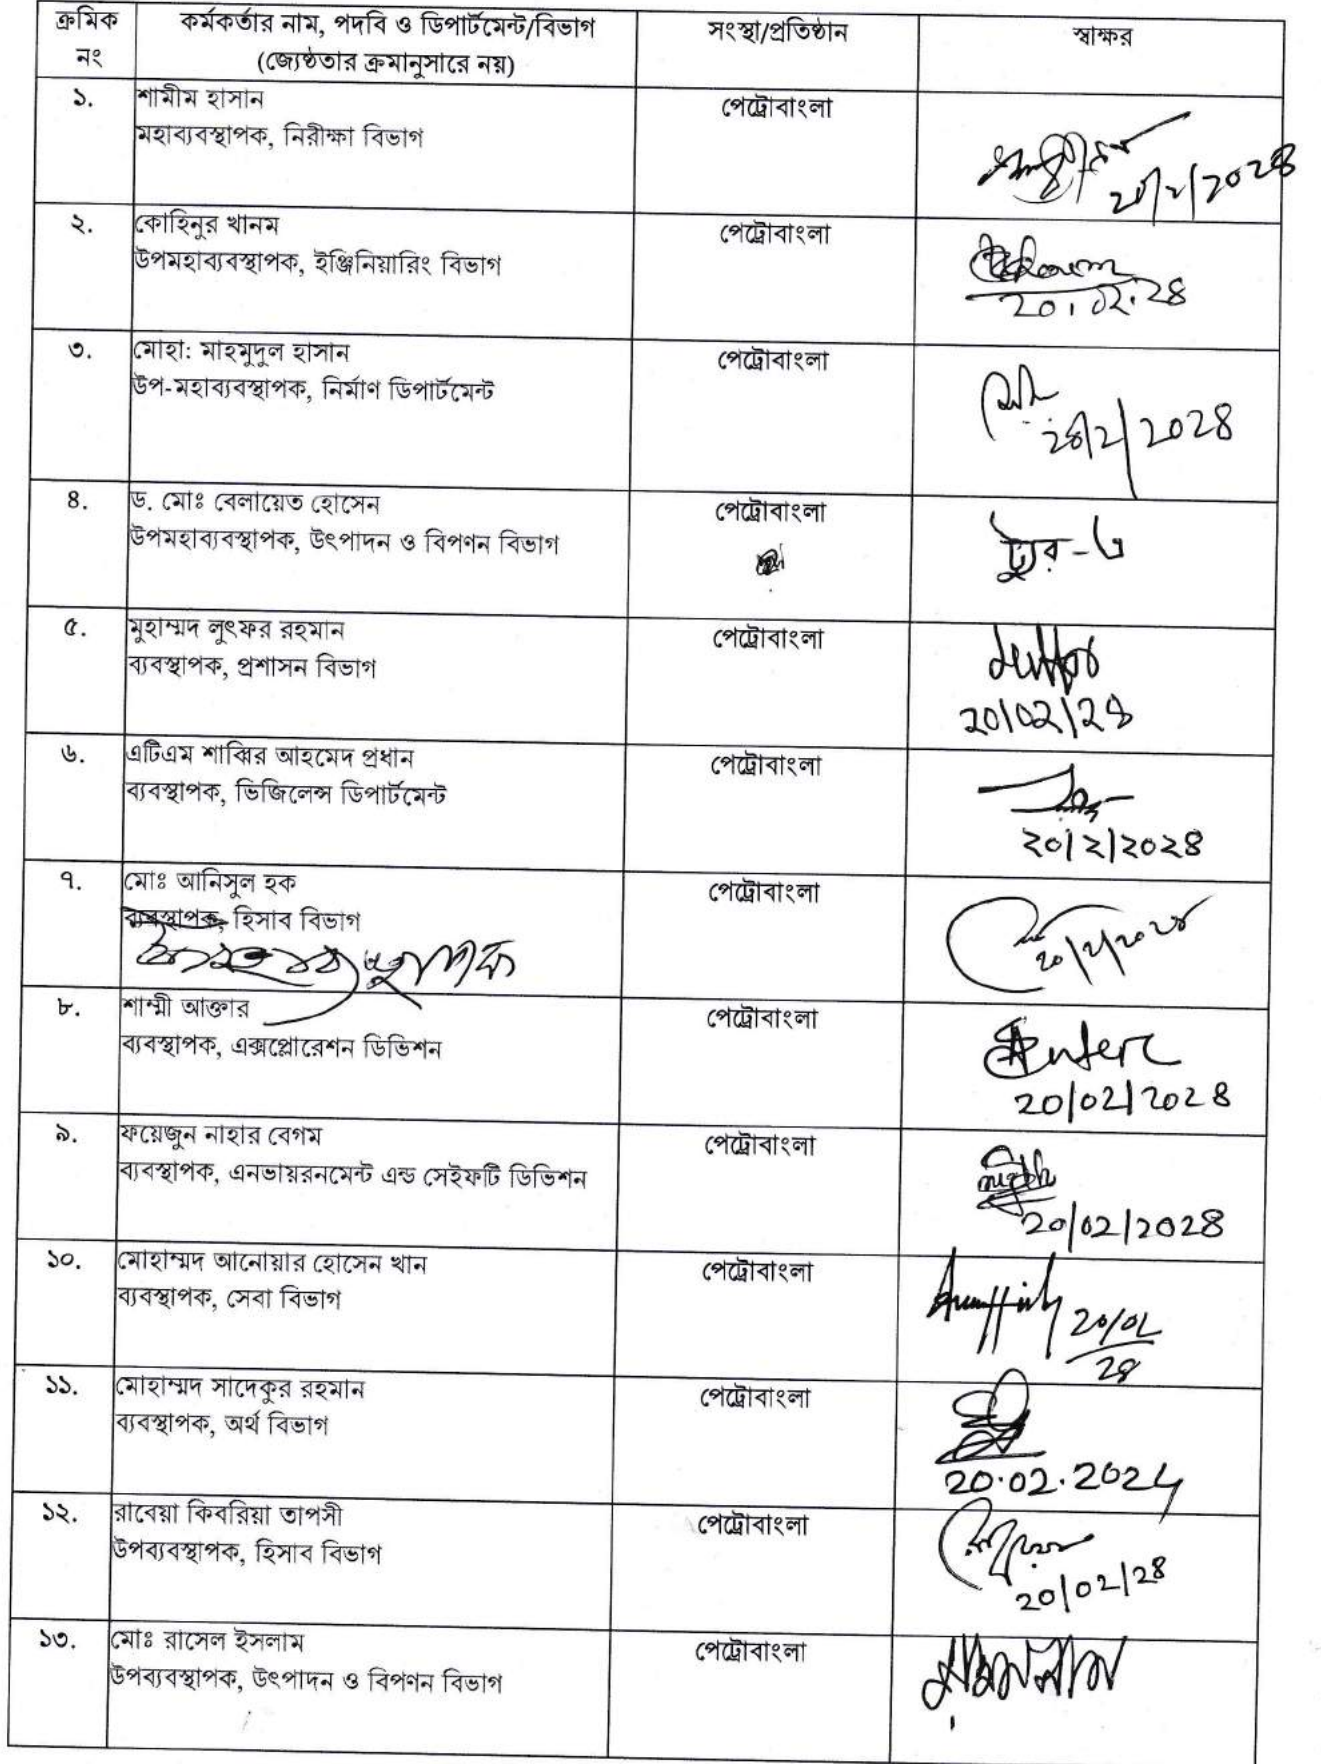 ক্রমিক নং
কর্মকর্তার নাম, পদবি ও ডিপার্টমেন্ট/বিভাগ
(জ্যেষ্ঠতার ক্রমানুসারে নয়)
সংস্থা/প্রতিষ্ঠান
স্বাক্ষর
১.
শামীম হাসান
মহাব্যবস্থাপক, নিরীক্ষা বিভাগ
পেট্রোবাংলা
২০/২/২০২৪
২.
কোহিনুর খানম
উপমহাব্যবস্থাপক, ইঞ্জিনিয়ারিং বিভাগ
পেট্রোবাংলা
২০.০২.২৪
৩.
মোহা: মাহমুদুল হাসান
উপ-মহাব্যবস্থাপক, নির্মাণ ডিপার্টমেন্ট
পেট্রোবাংলা
২০/২/২০২৪
৪.
ড. মোঃ বেলায়েত হোসেন
উপমহাব্যবস্থাপক, উৎপাদন ও বিপণন বিভাগ
পেট্রোবাংলা
৫.
মুহাম্মদ লুৎফর রহমান
ব্যবস্থাপক, প্রশাসন বিভাগ
পেট্রোবাংলা
২০/০২/২৪
৬.
এটিএম শাব্বির আহমেদ প্রধান
ব্যবস্থাপক, ভিজিলেন্স ডিপার্টমেন্ট
পেট্রোবাংলা
২০/২/২০২৪
৭.
মোঃ আনিসুল হক
ব্যবস্থাপক, হিসাব বিভাগ
পেট্রোবাংলা
২০/২/২০২৪
৮.
শাম্মী আক্তার
ব্যবস্থাপক, এক্সপ্লোরেশন ডিভিশন
পেট্রোবাংলা
২০/০২/২০২৪
৯.
ফয়েজুন নাহার বেগম
ব্যবস্থাপক, এনভায়রনমেন্ট এন্ড সেইফটি ডিভিশন
পেট্রোবাংলা
২০/০২/২০২৪
১০.
মোহাম্মদ আনোয়ার হোসেন খান
ব্যবস্থাপক, সেবা বিভাগ
পেট্রোবাংলা
২০/০২
২৪
১১.
মোহাম্মদ সাদেকুর রহমান
ব্যবস্থাপক, অর্থ বিভাগ
পেট্রোবাংলা
20.02.2024
১২.
রাবেয়া কিবরিয়া তাপসী
উপব্যবস্থাপক, হিসাব বিভাগ
পেট্রোবাংলা
২০/০২/২৪
১৩.
মোঃ রাসেল ইসলাম
উপব্যবস্থাপক, উৎপাদন ও বিপণন বিভাগ
পেট্রোবাংলা